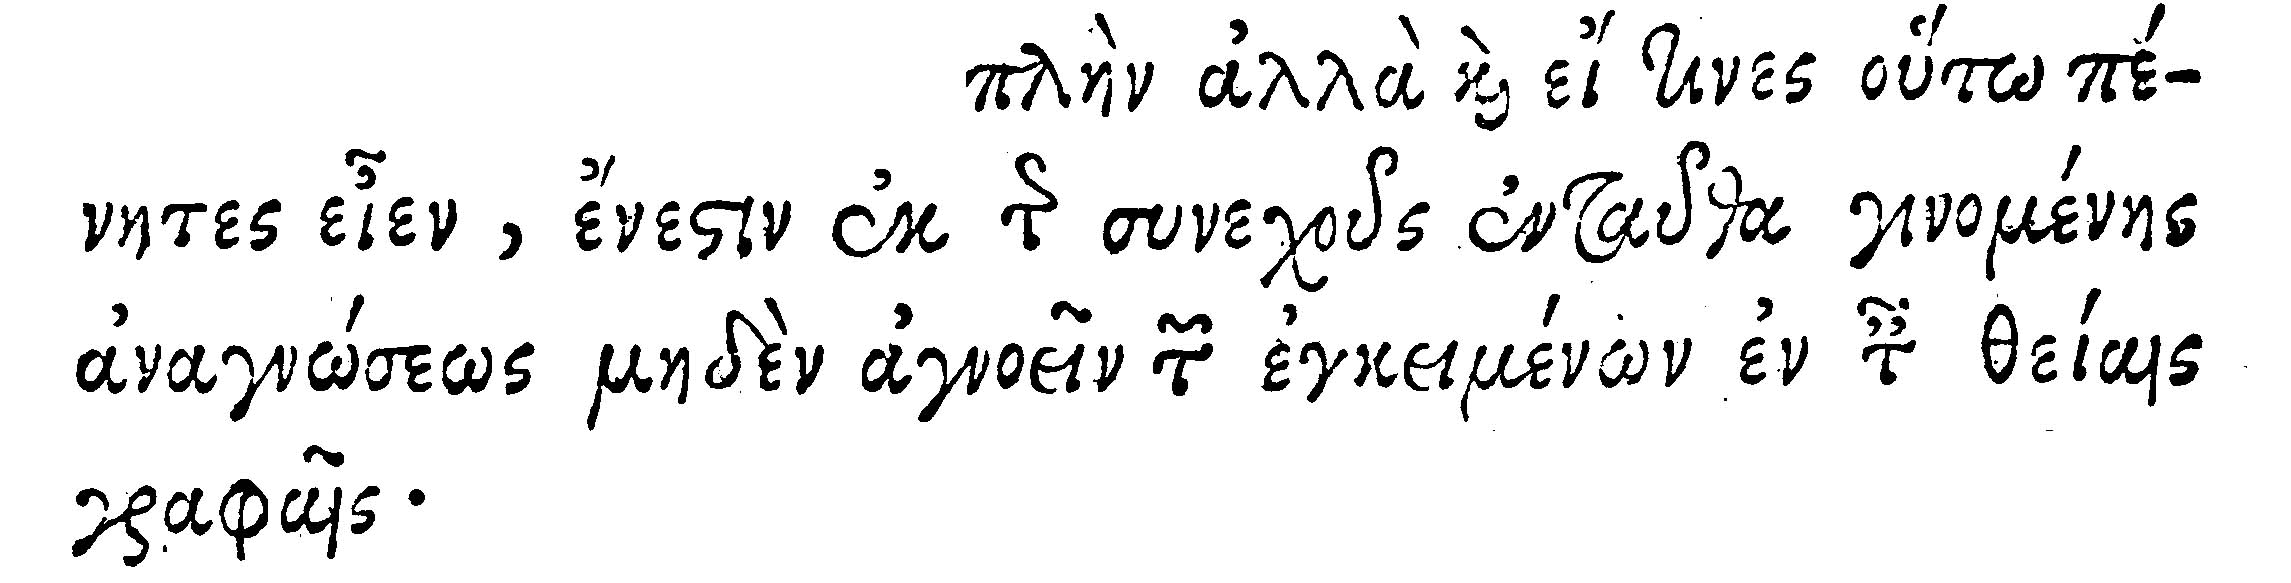 πλὴν ἀλλὰ καὶ εἴ τινες οὕτω πέ-
νητες εἶεν, ἔνεστιν ἐκ τοῦ συνεχοῦς ἐνταῦθα γινομένης
ἀναγνώσεως μηδὲν ἀγνοεῖν τῶν ἐγκειμένων ἐν ταῖς θείαις
γραφαῖς.